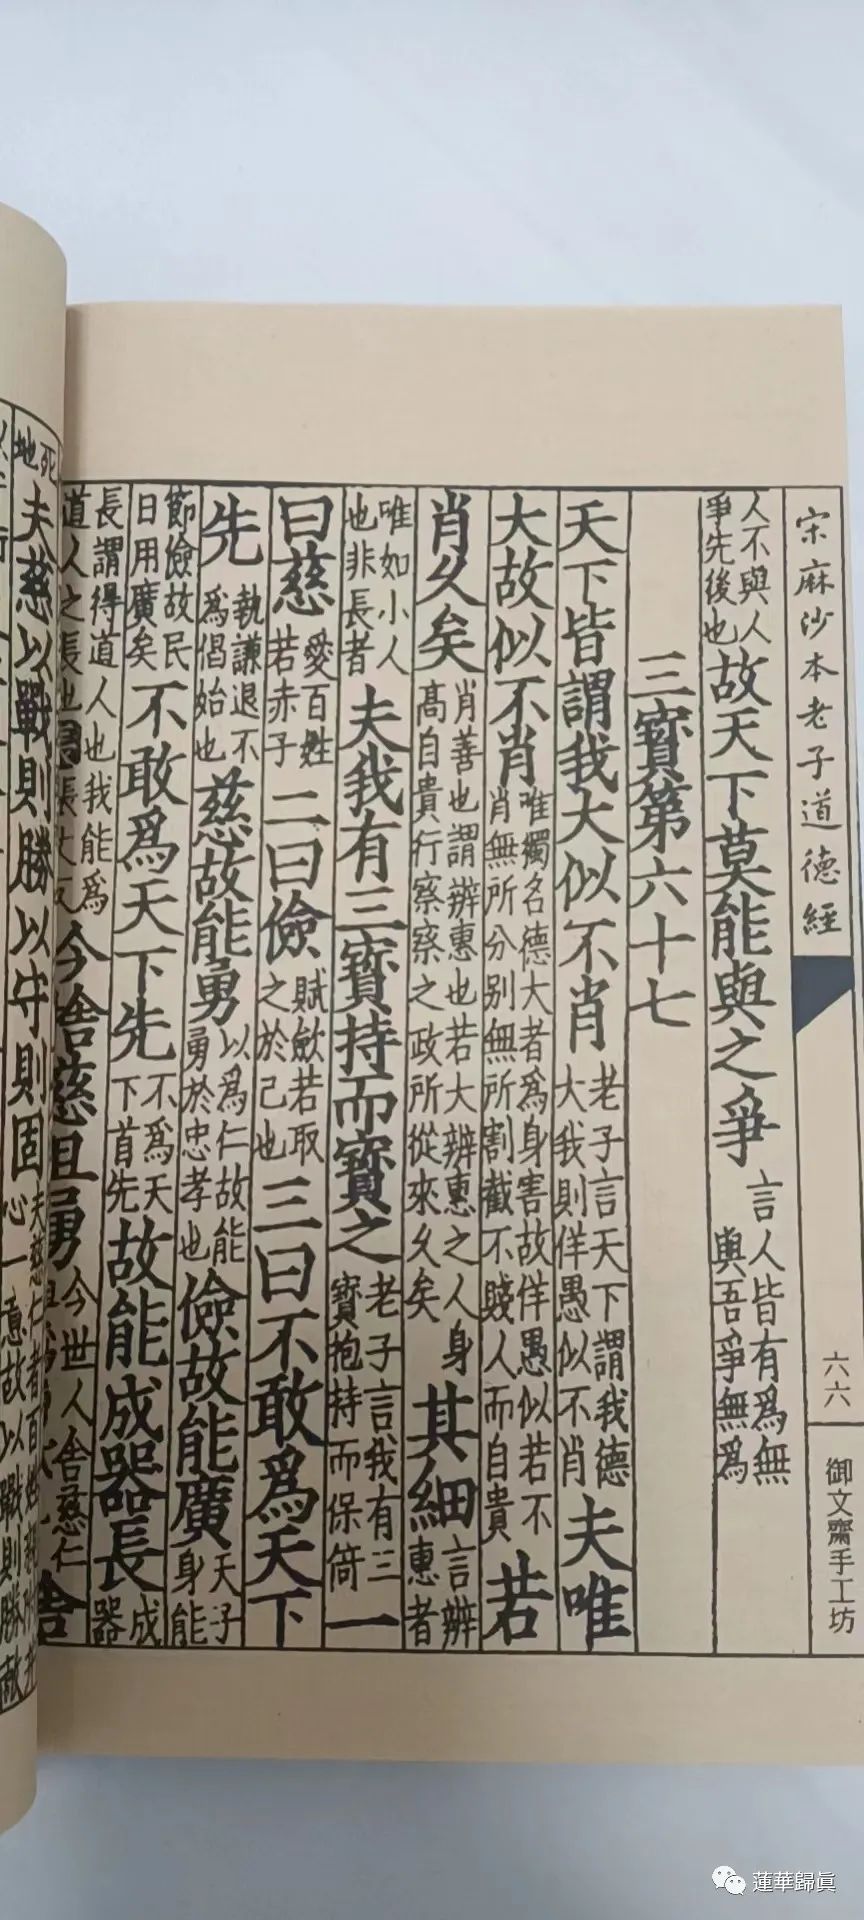 宋麻沙本老子道德經
六六
御文齋手工坊
人不與人爭先後也故天下莫能與之爭言人皆有爲無與吾爭無爲
三寳第六十七
天下皆謂我大似不肖老子言天下謂我德大我則佯愚似不肖夫唯
大故似不肖唯獨名德大者爲身害故佯愚似若不肖無所分别無所割截不賤人而自貴若
肖久矣肖善也謂辨惠也若大辨惠之人身高自貴行察察之政所從來久矣其細言辨惠者
唯如小人也非長者夫我有三寳持而寳之老子言我有三寳抱持而保倚一
曰慈愛百姓若赤子二曰儉賦歛若取之於己也三曰不敢爲天下
先執謙退不爲倡始也慈故能勇以爲仁故能勇於忠孝也儉故能廣天子身能
節儉故民日用廣矣不敢爲天下先不爲天下首先故能成器長成器
長謂得道人也我能爲道人之長也今舍慈且勇今世人舍慈仁舍
死地也夫慈以戰則勝以守則固夫慈仁者百姓心一意故以戰則勝敵
蓮華歸眞